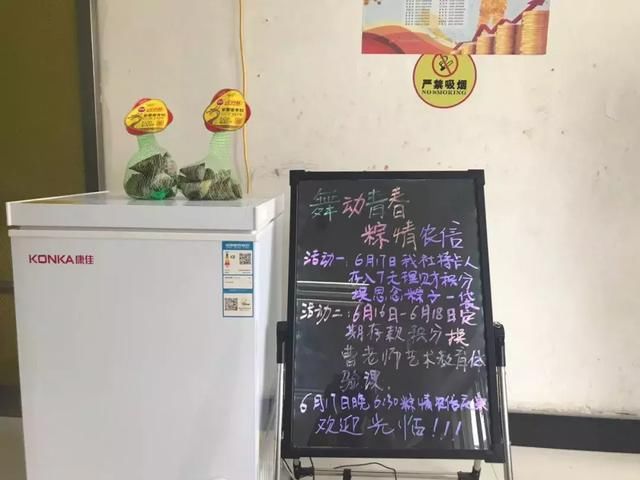 严禁吸烟
NO SMOKING
KONKA康佳
舞动青春
粽情农信
活动一:6月17日我社持卡人
存入7天理财积分
换思念粽子一袋
活动二:6月16日-6月18日定
期存款积分换
曹老师艺术教育体
验课.
6月17日晚6:30粽情农信
欢迎光临!!!